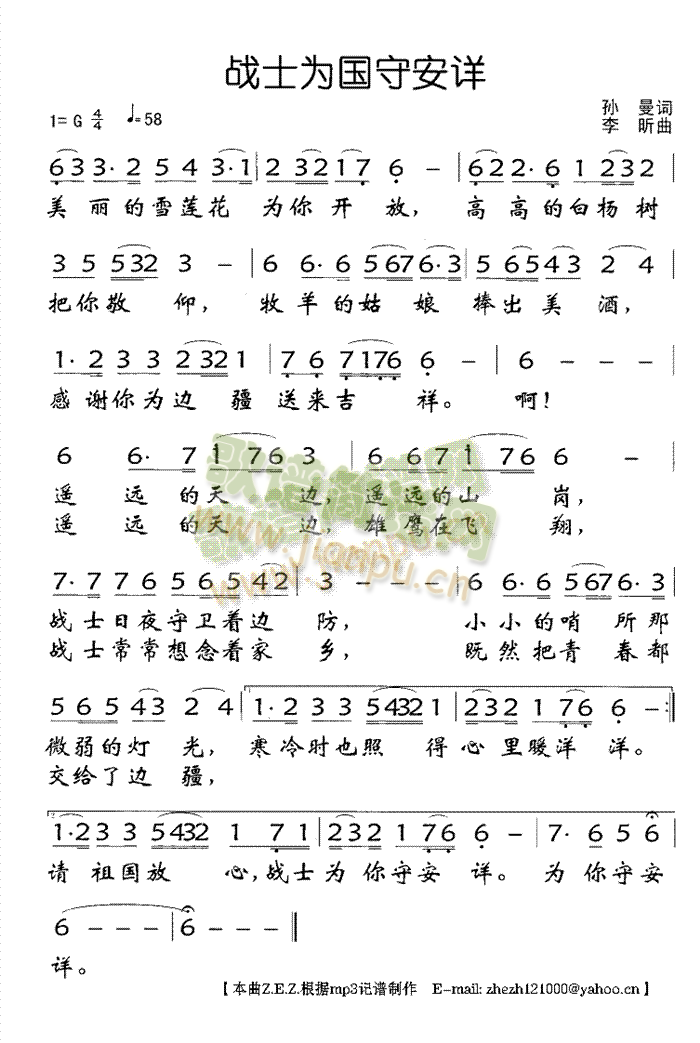 战士为国守安详
1= G 4/4 ♩=58
孙 曼词
李 昕曲
6 3 3· 2 5 4 3·1 | 2 3 2 1·7 6 – | 6 2 2·6 1 2 3 2
美 丽的雪莲花 为你开 放， 高 高的白杨树
3 5 5 3 2 3 – | 6 6· 6 5 6 7 6·3 | 5 6 5 4 3 2 4 |
把你敬 仰， 牧羊的姑 娘 捧出美 酒，
1· 2 3 3 2 3 2 1 | 7 6 7 1 7 6 6 – | 6 – – – |
感谢你为边 疆 送来吉 祥。 啊！
6 6· 7 1 7 6 3 | 6 6 7 1 7 6 6 – |
遥 远 的天 边，遥远的山 岗，
遥 远 的天 边，雄鹰在飞 翔，
7· 7 7 6 5 6 5 4 2 | 3 – – – | 6 6·6 5 5 6 7 6·3 |
战士日夜守卫着边 防， 小小的哨 所那
战士常常想念着家 乡， 既然把青 春都
5 6 5 4 3 2 4 | 1· 2 3 3 5 4 3 2 1 | 2 3 2 1 7 6 6 – :|
微弱的灯 光，寒冷时也照 得心里暖洋 洋。
交给了边 疆，
2. 1·2 3 3 5 4 3 2 1 7 1 | 2 3 2 1 7 6 6 – | 7· 6 5 6 |
请 祖国放 心，战士为 你守安 详。 为 你守安
6 – – – | 6 – – – ||
详。
【本曲Z.E.Z.根据mp3记谱制作 E-mail: zhezh121000@yahoo.cn】
歌谱简谱网
www.jianpu.cn